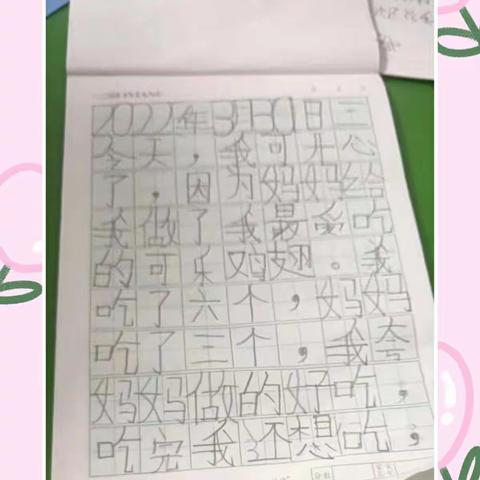 2022年3月30日三
今天，我可开心
了，因为妈妈给
我做了我最爱吃
的可乐又鸟翅。我
吃了六个，妈妈
吃了三个，我夸
妈妈做的好吃，
吃完我还想吃，